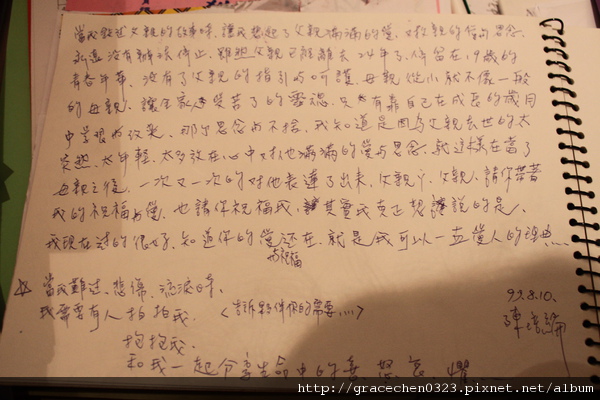 當我敘述父親的故事時,讓我想起了父親滿滿的愛,對父親的信與思念,
永遠沒有辦法停止,雖然父親已經離去24年了,停留在19歲的
青春年華,沒有了父親的指引與呵護,母親從小就不像一般
的母親,讓全家受苦了的靈魂,只有靠自己在成長的歲月
中學習與改進,那個思念與不捨,我知道是因為父親去世的太
突然,太年輕,太多放在心中對他滿滿的愛與思念,就這樣在當了
母親之後,一次又一次的對他表達了出來,父親,父親請你帶著
我的祝福與愛,也請你祝福我,其實我真正想說的是,
我現在過的很好,知道你的愛還在,就是我可以一直愛人的理由....
與祝福
☆當我難過、悲傷、流淚時,
我需要有人拍拍我. 〈告訴夥伴你的需要....〉
抱抱我.
和我一起分享生命中的喜怒哀懼....
99.8.10.
陳
http://gracechen0323.pixnet.net/album